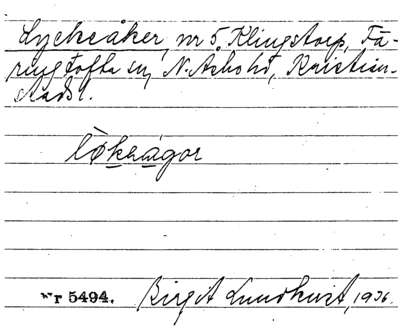 Lyckeåker, nr 5, Klingstorp, Fä-
ringtofta sn, N. Åsbo hd, Kristian-
stads l.
lökrågor
Nr 5494. Birgit Lundkvist, 1936.